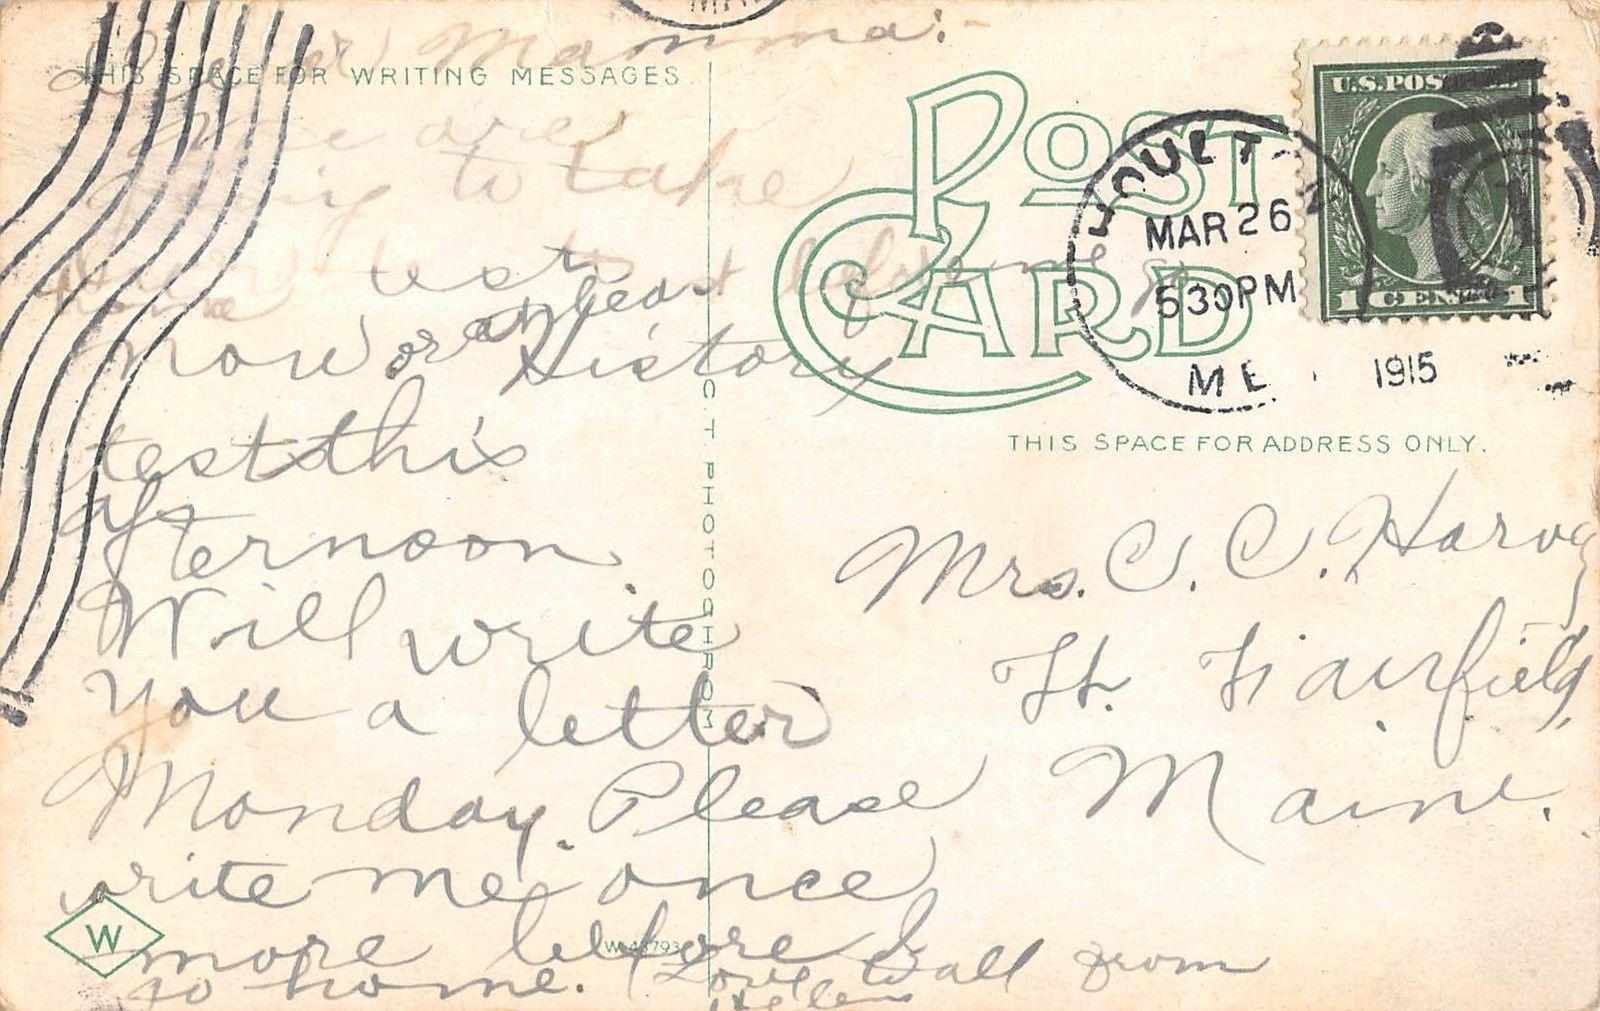 Dear Mamma:-
THIS SPACE FOR WRITING MESSAGES.
We are
going to take
our tests
home
now or at least before we go
History
test this
afternoon.
Will write
you a letter
Monday. Please
write me once
more before I
go home. Love to all from
Helen
W
C.T. PHOTOCHROM
POST
CARD
HOULTON
MAR 26
530PM
1915
ME
U.S. POSTAGE
1 CENT 1
THIS SPACE FOR ADDRESS ONLY.
Mrs. C. C. Harvey
Ft. Fairfield,
Maine.